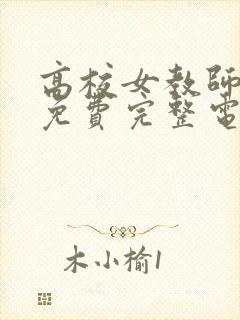 高校女教師
免費完整電
木小榆1